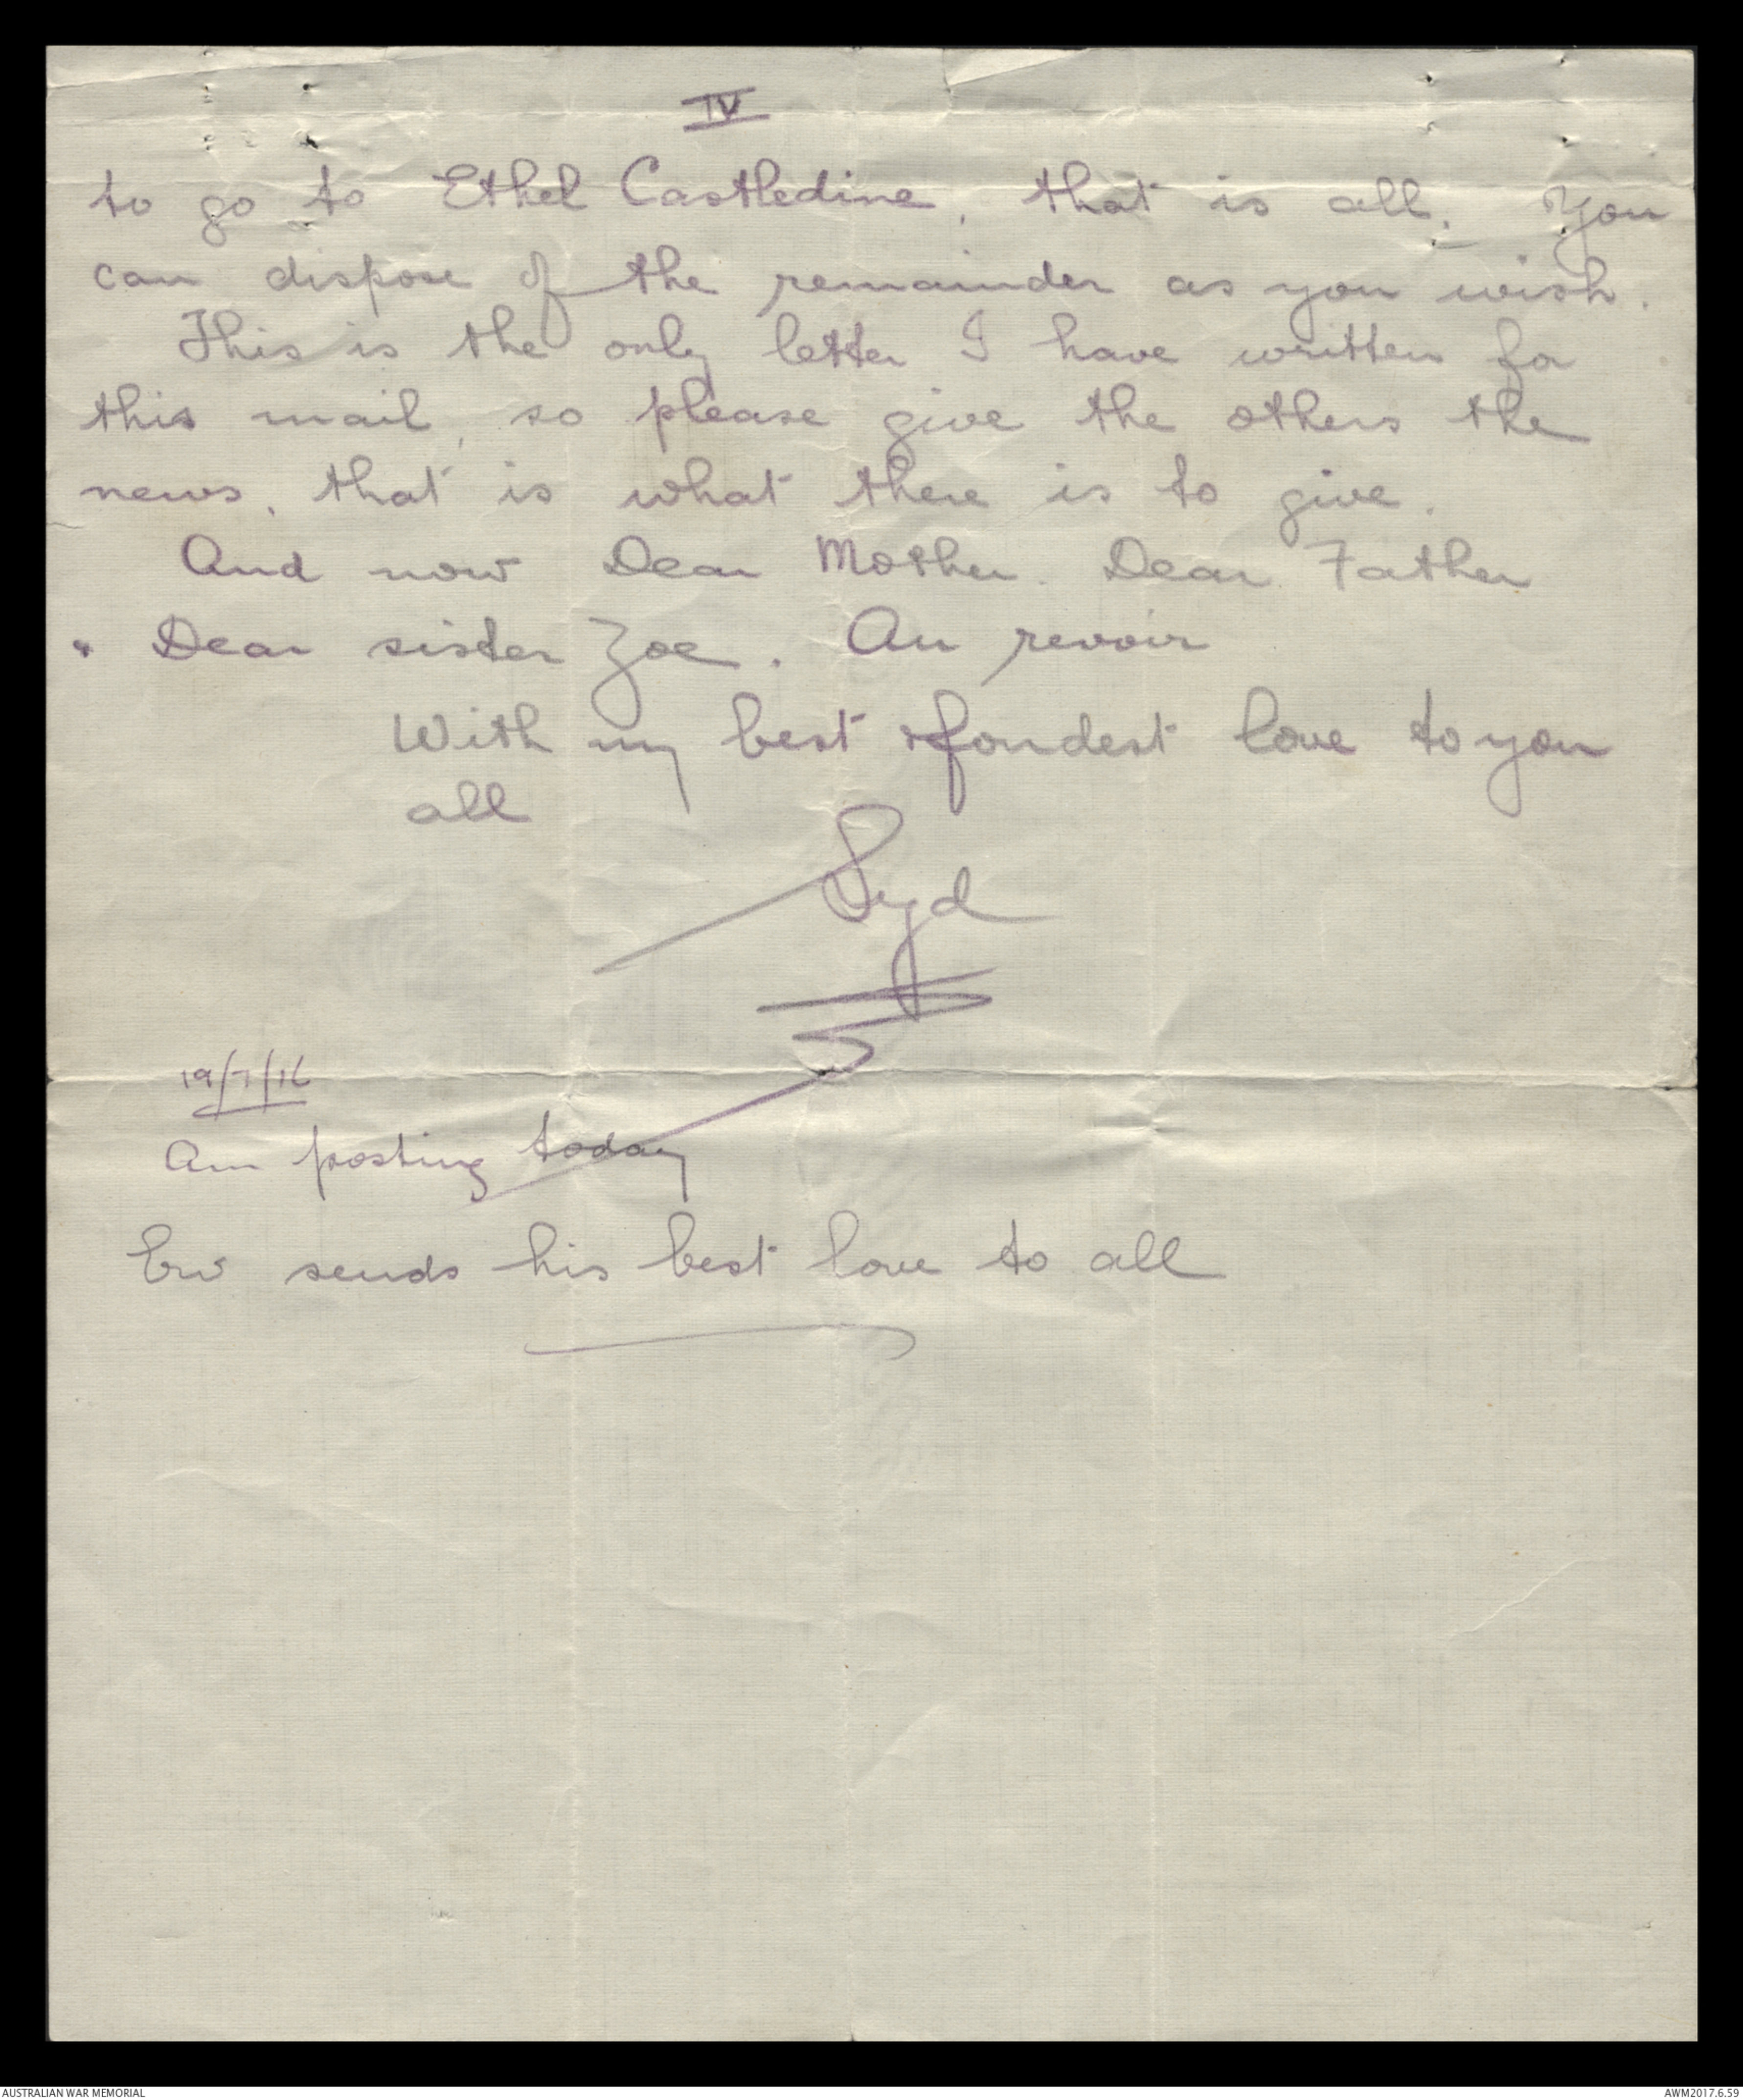 IV
to go to Ethel Castledine, that is all. You
can dispose of the remainder as you wish.
This is the only letter I have written for
this mail, so please give the others the
news, that is what there is to give.
And now Dear Mother. Dear Father
& Dear sister Zoe. Au revoir
With my best & fondest love to you
all
Syd
19/7/16
Am posting today
Erv sends his best love to all
AUSTRALIAN WAR MEMORIAL
AWM2017.6.59